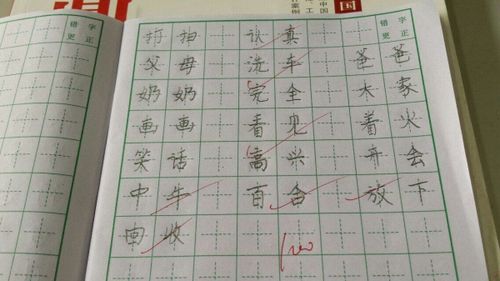 国
中国
工
案例
错字
更正
错字
更正
打扫 认真
父母 洗车 爸爸
奶奶 完全 大家
画画 看见 着火
笑话 高兴 开会
中牛 百合 放下
收
100